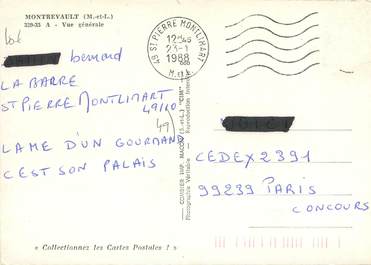 MONTREVAULT (M.-et-L.)
329-33 A - Vue générale
49 ST PIERRE MONTLIMART
12H45
23-1
1988
M.&L.
bernard
LA BARRE
ST PIERRE MONTLIMART
49110
49
LAME D'UN GOURMAND
C'EST SON PALAIS
COMBIER IMP. MACON (S.-et-L.) "CIM"
Photographie Véritable - Reproduction Interdite
CEDEX 2391
99239 PARIS
CONCOURS
« Collectionnez les Cartes Postales ! »